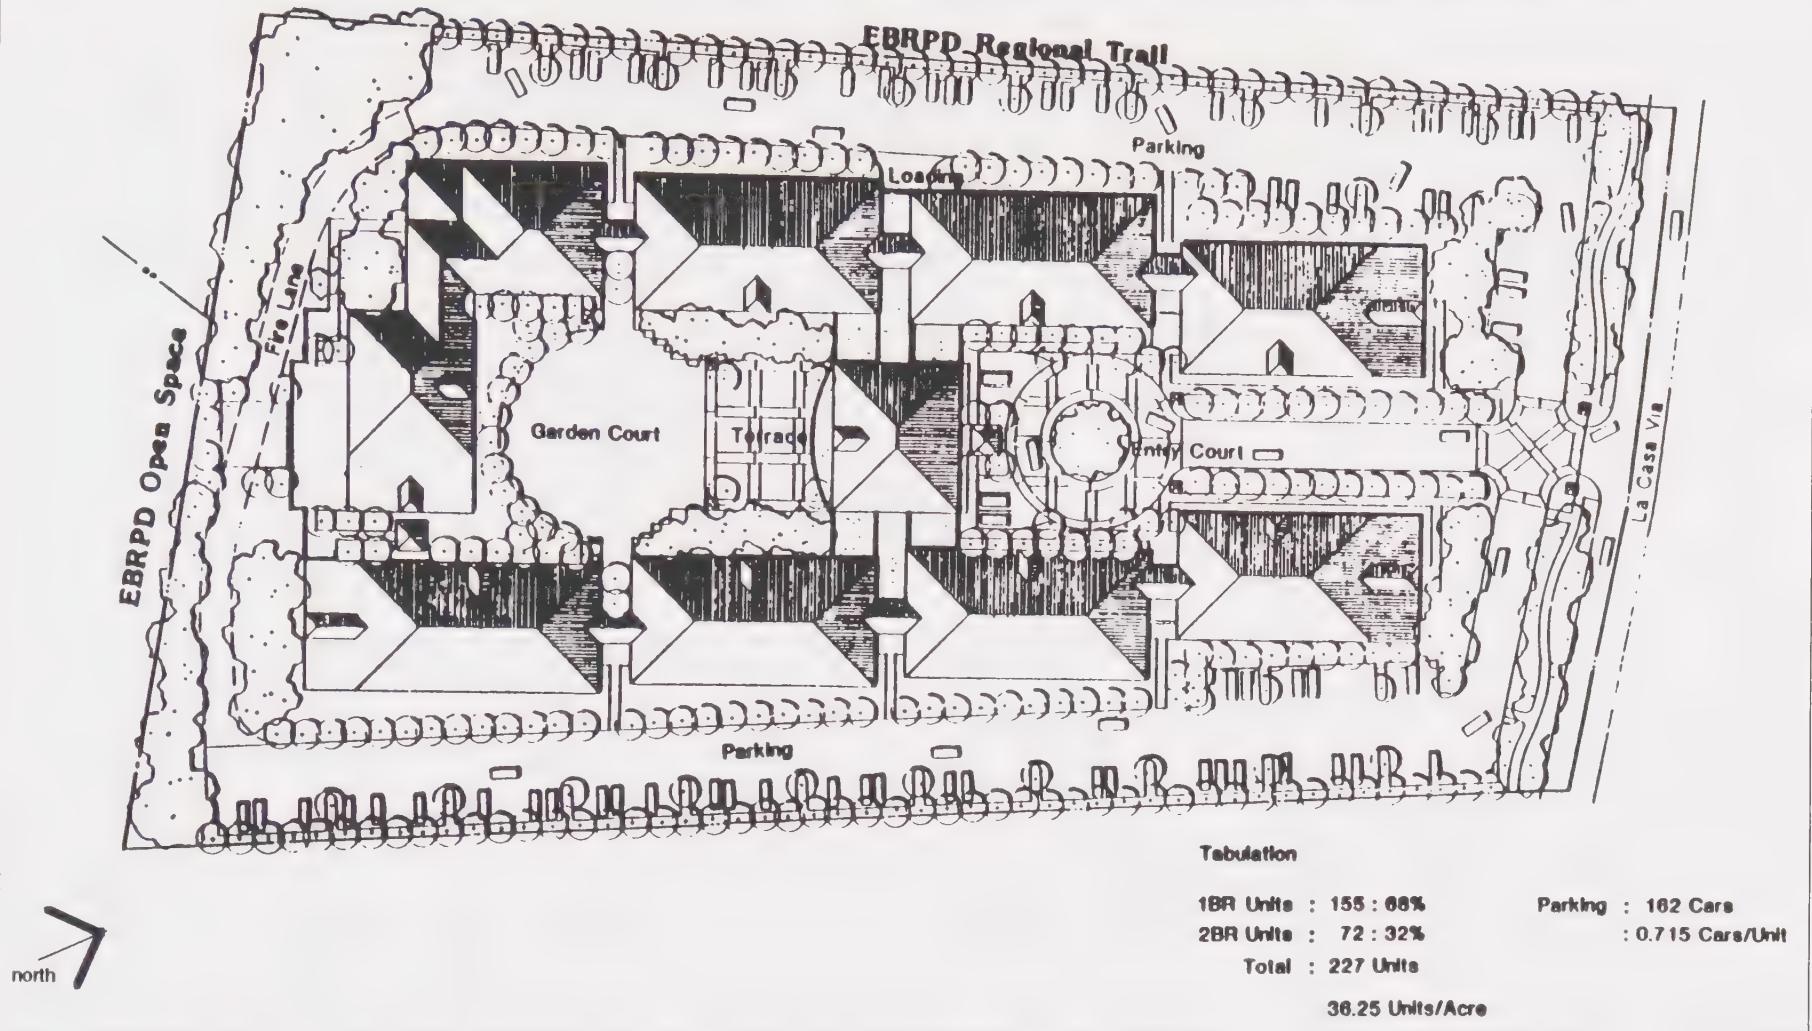 EBRPD Regional Trail
Parking
Loading
Fire Lane
EBRPD Open Space
Garden Court
Terrace
Entry Court
La Casa Via
Parking
Tabulation
1BR Units : 155 : 68%
2BR Units : 72 : 32%
Total : 227 Units
36.25 Units/Acre
Parking : 162 Cars
: 0.715 Cars/Unit
north